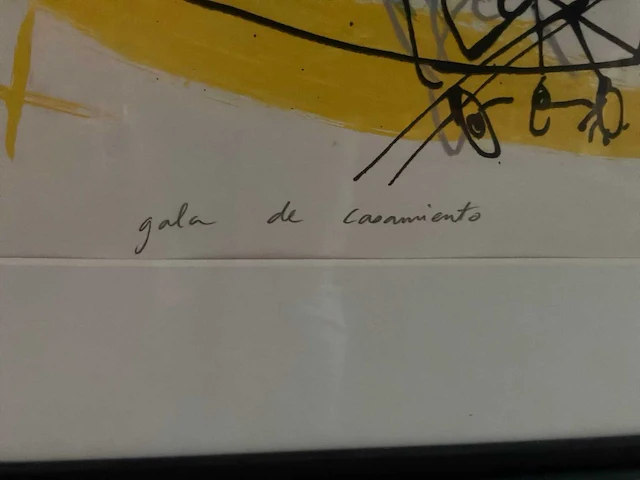 gala de casamiento